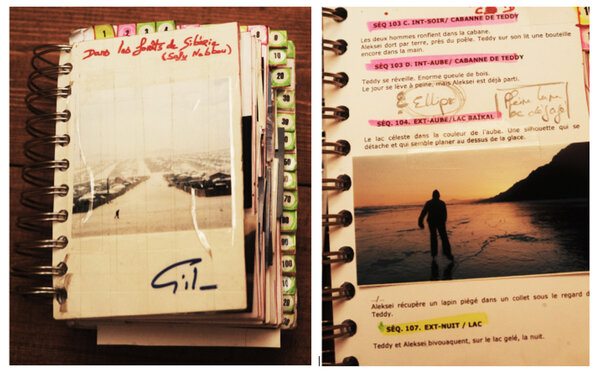 Dans les forêts de Sibérie
(Safy Nebbou)
1 2 3 8 9
10
20
Gil
100
10
20
SÉQ 103 C. INT-SOIR/ CABANNE DE TEDDY
Les deux hommes ronflent dans la cabane.
Aleksei dort par terre, près du poêle. Teddy sur son lit une bouteille
encore dans la main.
SÉQ 103 D. INT-AUBE/ CABANNE DE TEDDY
Teddy se réveille. Enorme gueule de bois.
Le jour se lève à peine, mais Aleksei est déjà parti.
Ellips
Pleine lune
lac
SÉQ. 104. EXT-AUBE/LAC BAÏKAL
Le lac céleste dans la couleur de l'aube. Une silhouette qui se
détache et qui semble planer au dessus de la glace.
Aleksei récupère un lapin piégé dans un collet sous le regard d
Teddy.
SÉQ. 107. EXT-NUIT / LAC
Teddy et Aleksei bivouaquent, sur le lac gelé, la nuit.